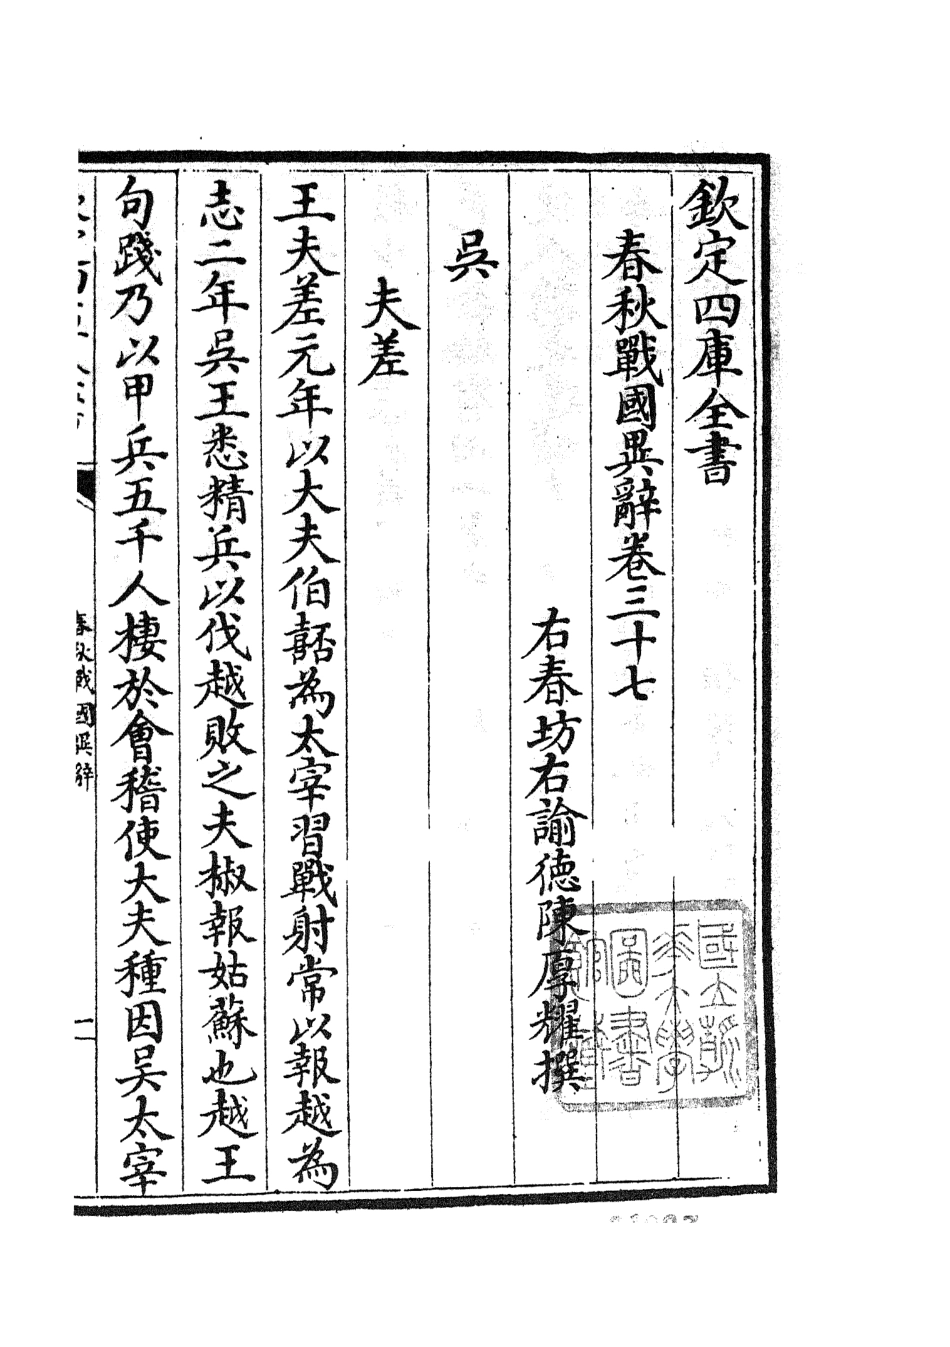 欽定四庫全書
春秋戰國異辭卷三十七
右春坊右諭德陳厚耀撰
吳
夫差
王夫差元年以大夫伯嚭為太宰習戰射常以報越為
志二年吳王悉精兵以伐越敗之夫椒報姑蘇也越王
句踐乃以甲兵五千人棲於會稽使大夫種因吳太宰
春秋戰國異辭
一